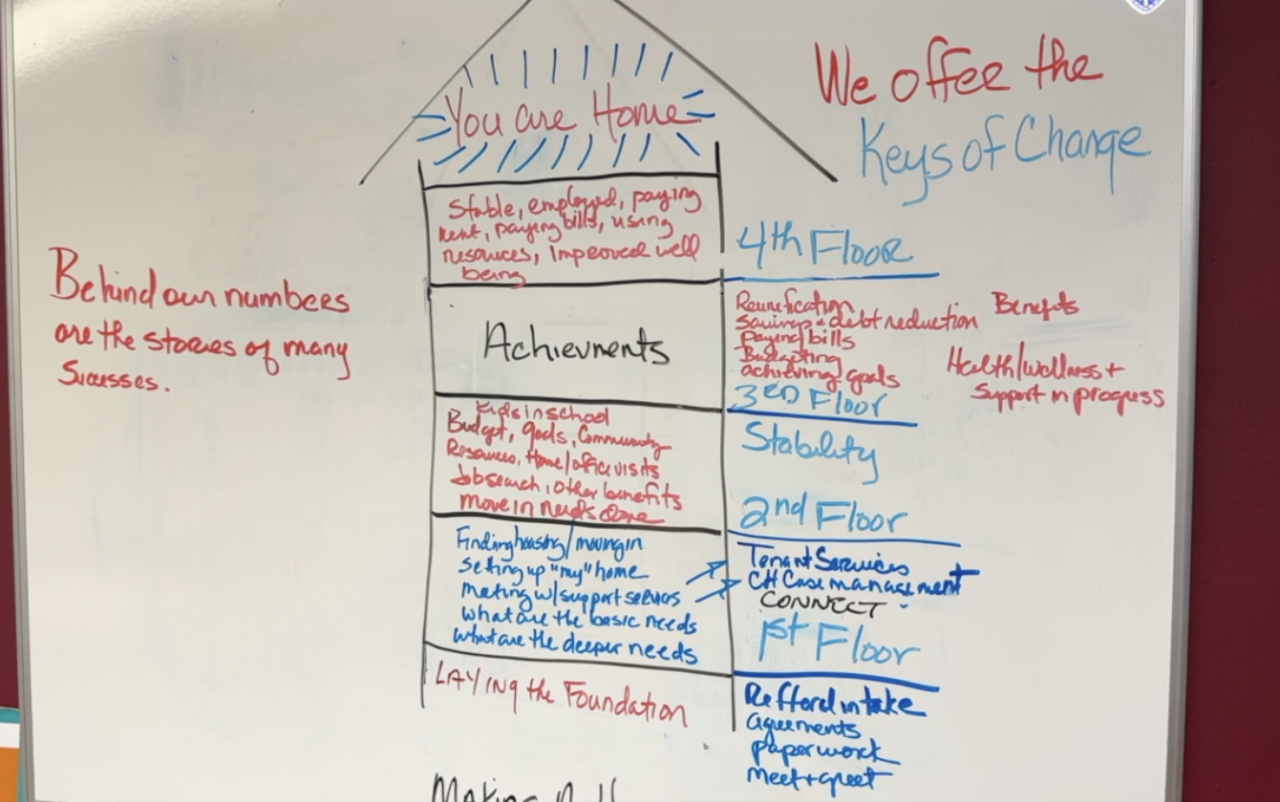 We offer the
Keys of Change
You are Home
Stable, employed, paying
rent, paying bills, using
resources, Improved well
being
4th Floor
Behind our numbers
are the stories of many
Sucesses.
Achievments
Reunification
Savings + debt reduction
paying bills
Budgeting
achieving goals
Benefits
Health/wellness +
Support in progress
3rd Floor
Kids in school
Budget, goals, Community
Resources, Home/office visits
Job search, other benefits
move in needs done
Stability
2nd Floor
Finding housing/moving in
Setting up "my" home
meeting w/support services
what are the basic needs
what are the deeper needs
Tenant Services +
CH Case management
CONNECT
1st Floor
LAYing the Foundation
Refferd intake
agreements
paperwork
meet + greet